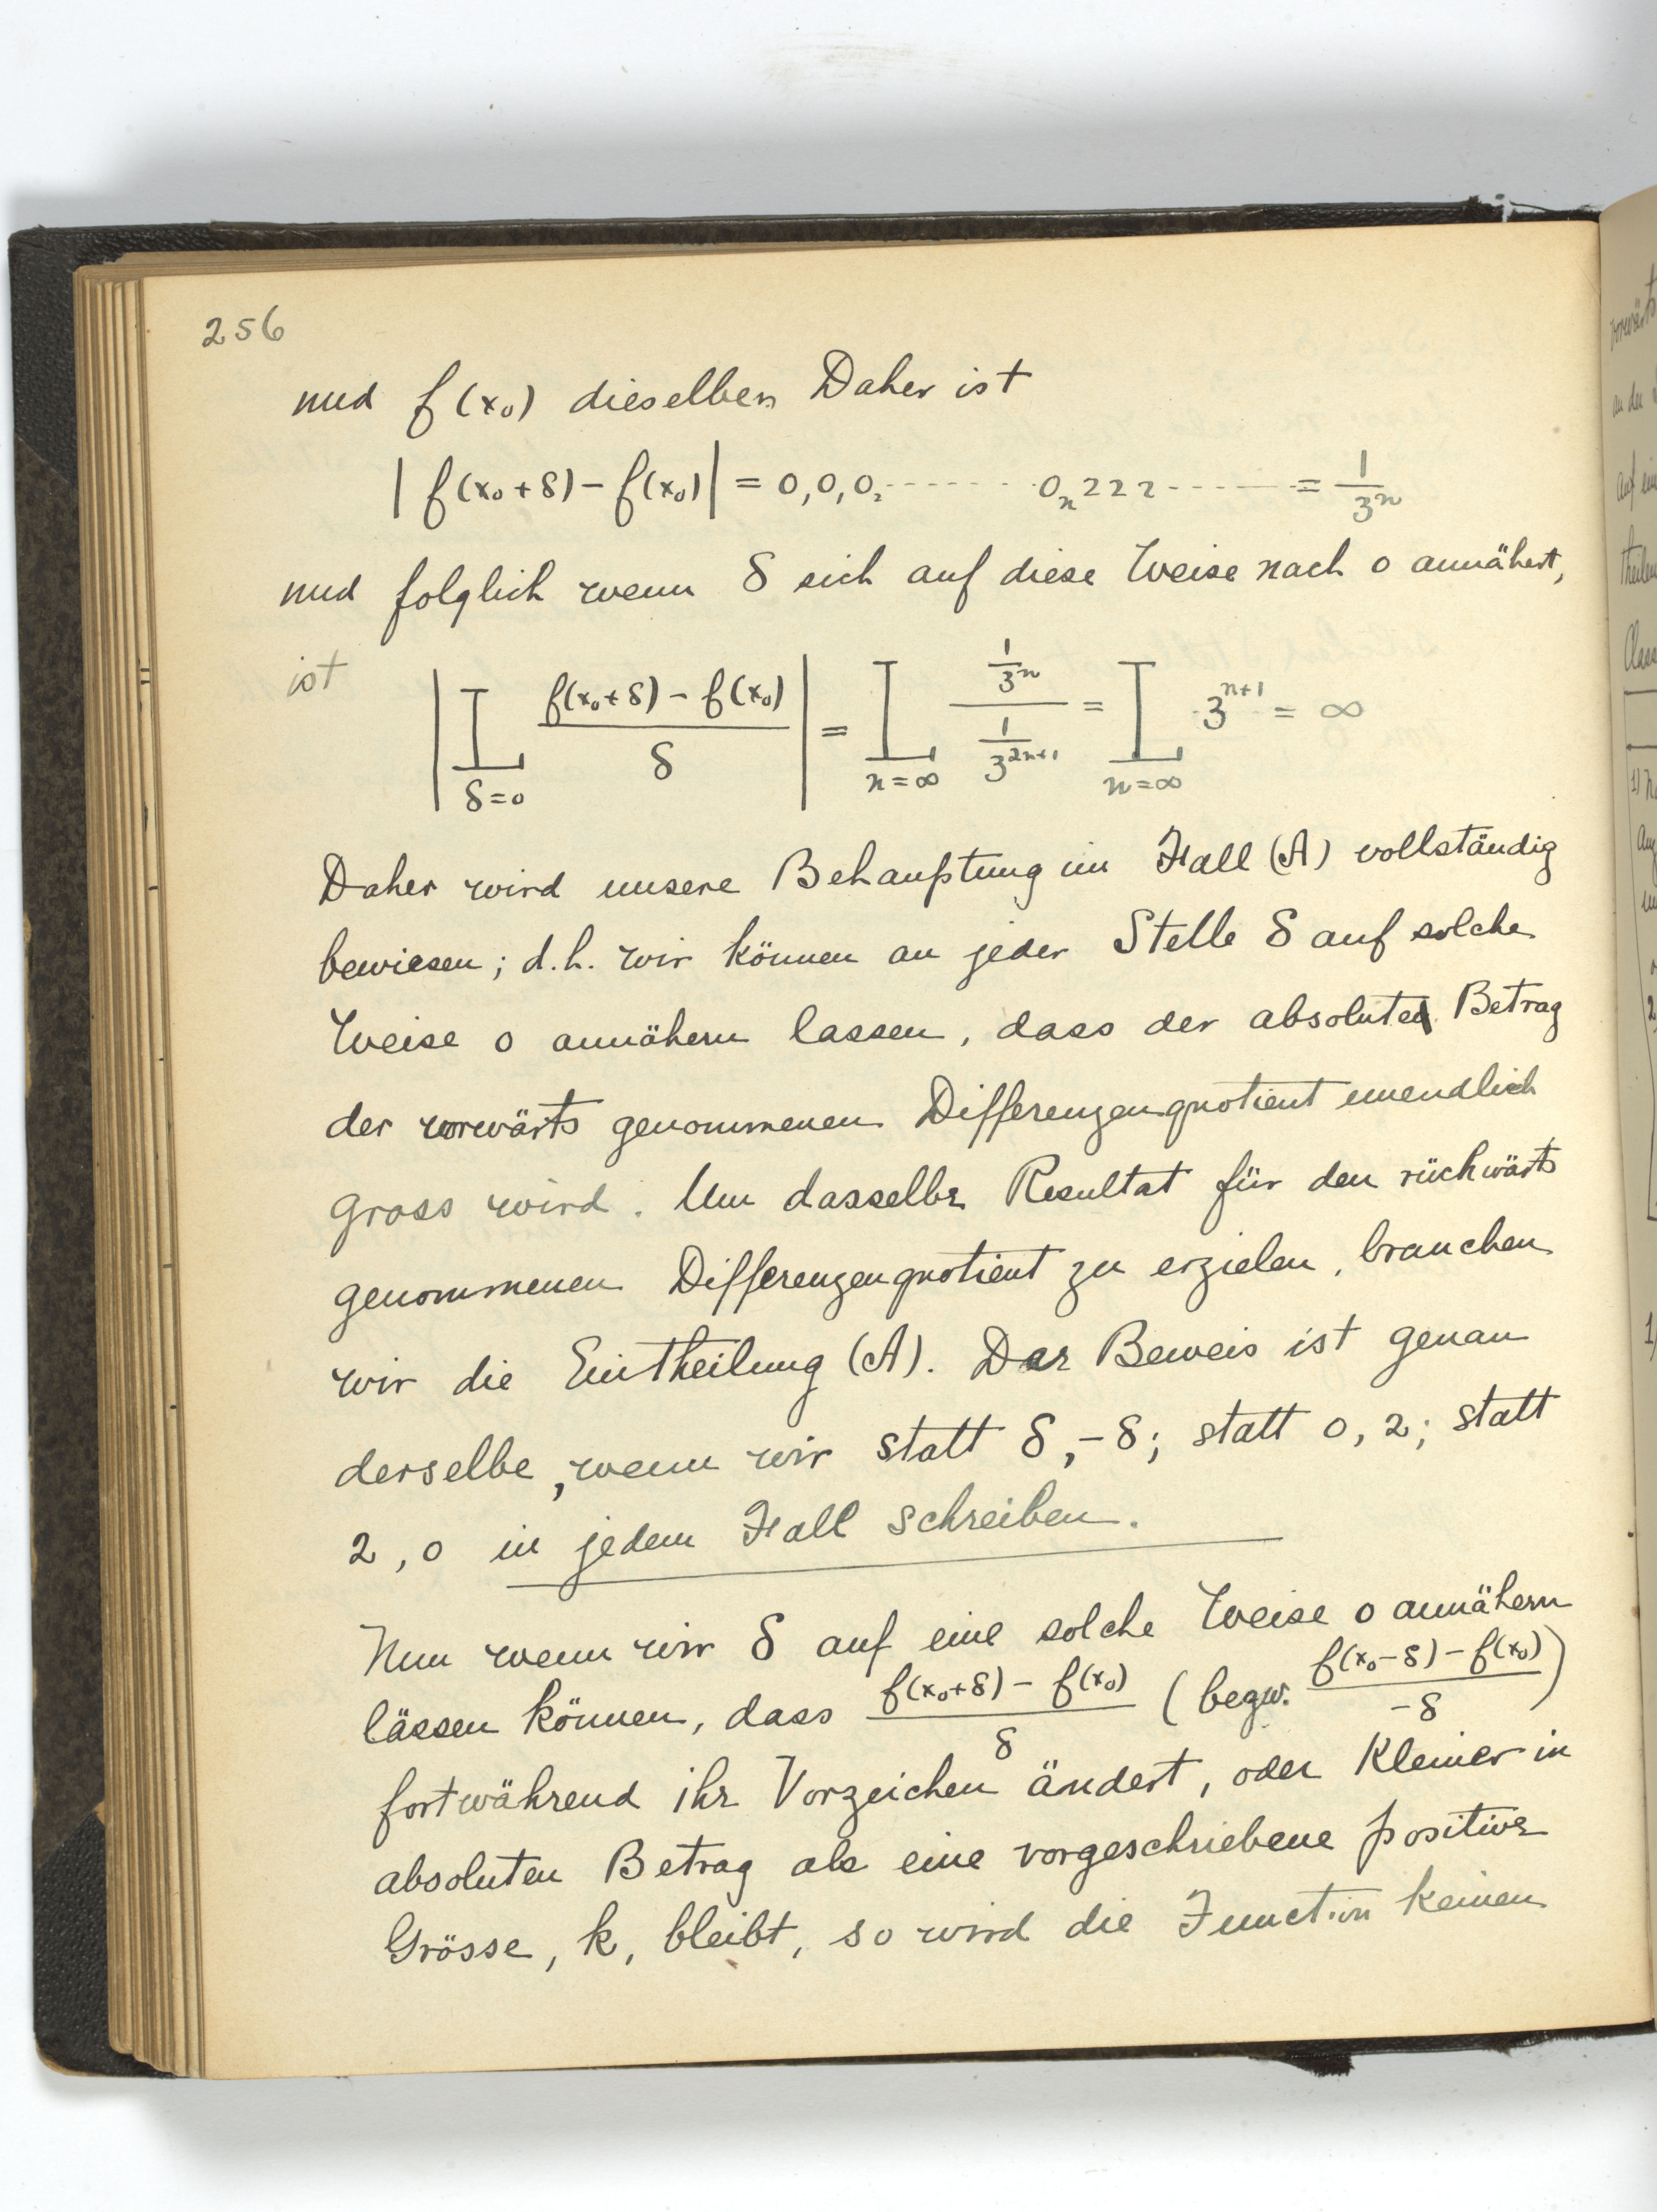 256
und f(x₀) dieselben Daher ist
| f(x₀+δ) − f(x₀) | = 0,0₁0₂ - - - - - - 0ₙ222 - - - - - = 1/3ⁿ
und folglich wenn δ sich auf diese Weise nach 0 annähert,
ist | L_{δ=0} (f(x₀+δ) − f(x₀))/δ | = L_{n=∞} (1/3ⁿ)/(1/3²ⁿ⁺¹) = L_{n=∞} 3ⁿ⁺¹ = ∞
Daher wird unsere Behauptung im Fall (A) vollständig
bewiesen; d.h. wir können an jeder Stelle δ auf solche
Weise 0 annähern lassen, dass der absolute Betrag
der vorwärts genommenen Differenzenquotient unendlich
gross wird. Um dasselbe Resultat für den rückwärts
genommenen Differenzenquotient zu erzielen, brauchen
wir die Eintheilung (A). Der Beweis ist genau
derselbe, wenn wir statt δ, −δ; statt 0, 2; statt
2, 0 in jedem Fall schreiben.
Nun wenn wir δ auf eine solche Weise 0 annähern
lässen können, dass (f(x₀+δ) − f(x₀))/δ (bezw. (f(x₀−δ) − f(x₀))/−δ)
fortwährend ihr Vorzeichen ändert, oder kleiner in
absoluten Betrag als eine vorgeschriebene positive
Grösse, k, bleibt, so wird die Function keinen